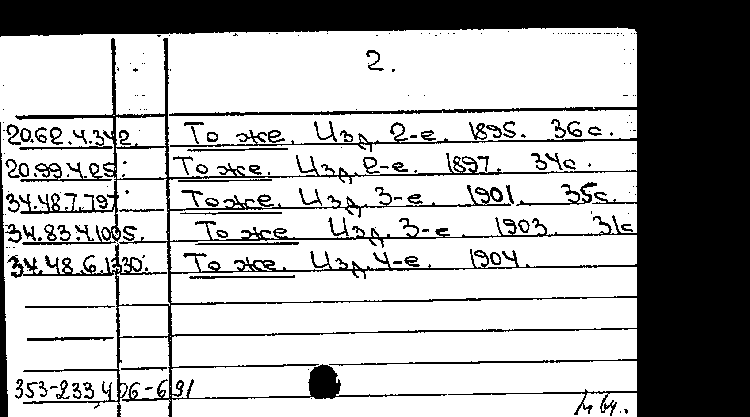 2.
20.62.4.342. То же. Изд. 2-е. 1895. 36с.
20.99.4.25. То же. Изд. 2-е. 1897. 34с.
34.48.7.797. То же. Изд. 3-е. 1901. 35с.
34.83.4.1005. То же. Изд. 3-е. 1903. 31с
34.48.6.1330. То же. Изд. 4-е. 1904.
353-233 406-691